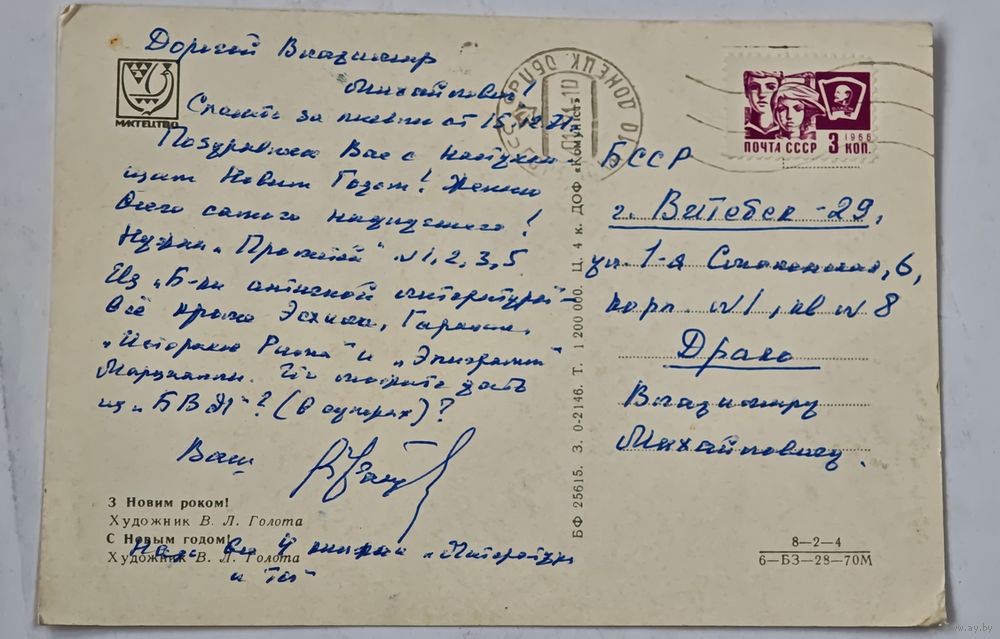 Дорогой Владимир
Михайлович!
Спасибо за письмо от 15.12.71
Поздравляю Вас с наступаю
щим Новым Годом! Желаю
Всего самого наилучшего!
Нужны „Прометей" №1, 2, 3, 5
Из „Б-ки античной литературы" –
всё кроме Эсхила, Горация,
„История Рима" и „Эпиграммы"
Марциалли. Что можете дать
из „БВЛ"? (в суперах)?
Ваш
МИСТЕЦТВО
З Новим роком!
Художник В. Л. Голота
С Новым годом!
Художник В. Л. Голота
книги „Литература
и ты"
БФ 25615. З. 0-2146. Т. 1 200 000. Ц. 4 к. ДОФ «Комуніст»
ДОНЕЦК ОБЛ
ПОЧТА СССР 3 КОП.
1966
БССР
г. Витебск-29,
ул. 1-я 6,
корп. №1, кв №8
Драко
Владимиру
Михайловичу.
8—2—4
6—БЗ—28—70М
www.ay.by